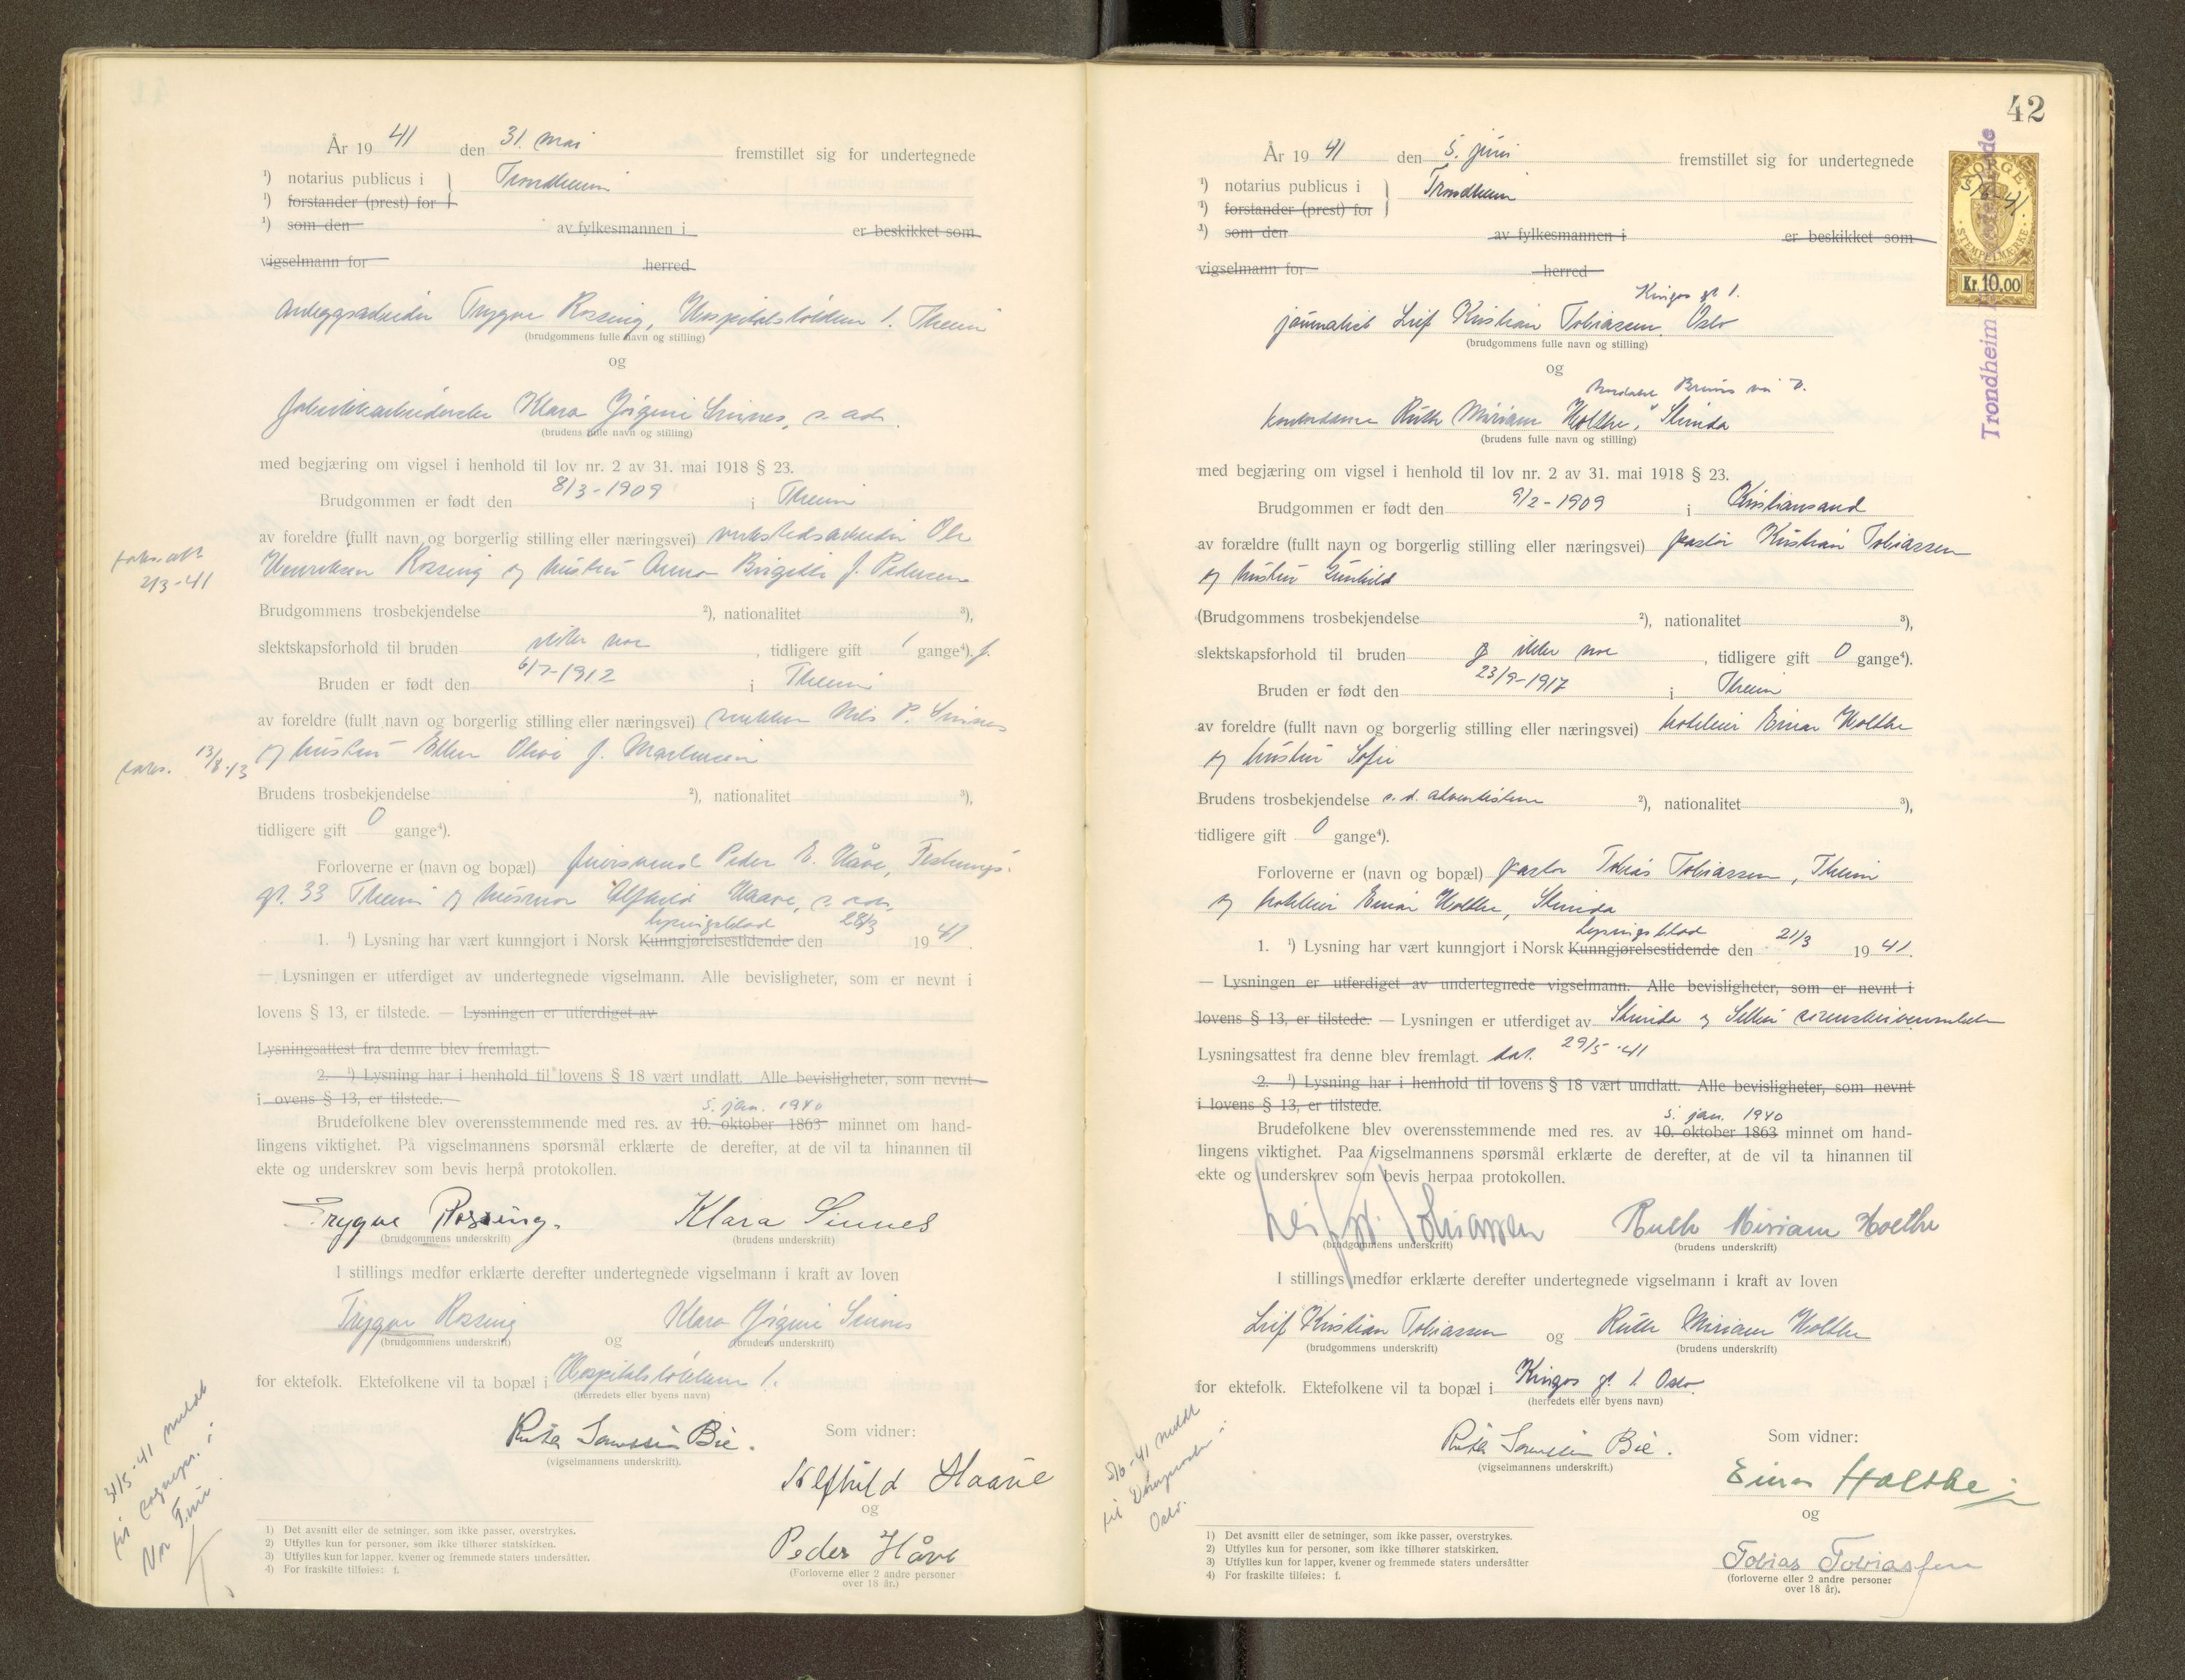 År 19 41 den 31. mai fremstillet sig for undertegnede
¹) notarius publicus i } Trondheim
¹) forstander (prest) for
¹) som den av fylkesmannen i er beskikket som
vigselmann for herred
anleggsarbeider Trygve Rossing, Hospitalsløkken 1. Theim
(brudgommens fulle navn og stilling)
og
fabrikkarbeiderske Klara Jørgine Sinnes, s. adr.
(brudens fulle navn og stilling)
med begjæring om vigsel i henhold til lov nr. 2 av 31. mai 1918 § 23.
Brudgommen er født den 8/3-1909 i Theim
av foreldre (fullt navn og borgerlig stilling eller næringsvei) verkstedsarbeider Ole
Henriksen Rossing og hustru Anna Birgitte f. Pedersen
21/3-41
Brudgommens trosbekjendelse ²), nationalitet ³),
slektskapsforhold til bruden ikke noe, tidligere gift 1 gange⁴). f.
Bruden er født den 6/7-1912 i Theim
av foreldre (fullt navn og borgerlig stilling eller næringsvei) snekker Nils P. Sinnes
og hustru Ellen Olive f. Martinsen
13/8-13
Brudens trosbekjendelse ²), nationalitet ³),
tidligere gift 0 gange⁴).
Forloverne er (navn og bopæl) feiersvend Peder E. Håve, Festnings-
gt. 33 Theim og husmor Alfhild Haave, s. adr.
lysningsblad
1. ¹) Lysning har vært kunngjort i Norsk Kunngjørelsestidende den 28/3 19 41.
— Lysningen er utferdiget av undertegnede vigselmann. Alle bevisligheter, som er nevnt i
lovens § 13, er tilstede. — Lysningen er utferdiget av
Lysningsattest fra denne blev fremlagt.
2. ¹) Lysning har i henhold til lovens § 18 vært undlatt. Alle bevisligheter, som nevnt
i ovens § 13, er tilstede.
5. jan. 1940
Brudefolkene blev overensstemmende med res. av 10. oktober 1863 minnet om hand-
lingens viktighet. På vigselmannens spørsmål erklærte de derefter, at de vil ta hinannen til
ekte og underskrev som bevis herpå protokollen.
Trygve Rossing. Klara Sinnes
(brudgommens underskrift) (brudens underskrift)
I stillings medfør erklærte derefter undertegnede vigselmann i kraft av loven
Trygve Rossing og Klara Jørgine Sinnes
(brudgommens underskrift) (brudens underskrift)
for ektefolk. Ektefolkene vil ta bopæl i Hospitalsløkken 1.
(herredets eller byens navn)
31/5-41 meldt
til sognepr. i
Vor Frue
Bie.
(vigselmannens underskrift).
Som vidner:
Alfhild Haave
og
Peder Håve
(Forloverne eller 2 andre personer
over 18 år.)
1) Det avsnitt eller de setninger, som ikke passer, overstrykes.
2) Utfylles kun for personer, som ikke tilhører statskirken.
3) Utfylles kun for lapper, kvener og fremmede staters undersåtter.
4) For fraskilte tilføies: f.
42
År 19 41 den 5. juni fremstillet sig for undertegnede
¹) notarius publicus i } Trondheim
¹) forstander (prest) for
¹) som den av fylkesmannen i er beskikket som
vigselmann for herred
NORGE
5/6 41
STEMPELMERKE
Kr. 10,00
Trondheim
Kingos gt 1.
journalist Leif Kristian Tobiassen, Oslo
(brudgommens fulle navn og stilling)
og
Nordahl Bruns vei 7.
kontordame Ruth Miriam Holthe, Strinda
(brudens fulle navn og stilling)
med begjæring om vigsel i henhold til lov nr. 2 av 31. mai 1918 § 23.
Brudgommen er født den 9/2-1909 i Kristiansand
av forældre (fullt navn og borgerlig stilling eller næringsvei) pastor Kristian Tobiassen
og hustru Gunhild
(Brudgommens trosbekjendelse ²), nationalitet ³),
slektskapsforhold til bruden ikke noe, tidligere gift 0 gange⁴).
Bruden er født den 23/9-1917 i Theim
av foreldre (fullt navn og borgerlig stilling eller næringsvei) hotelleier Einar Holthe
og hustru Sofie
Brudens trosbekjendelse s. d. adventistene ²), nationalitet ³),
tidligere gift 0 gange⁴).
Forloverne er (navn og bopæl) pastor Tobias Tobiassen, Theim
og hotelleier Einar Holthe, Strinda
Lysningsblad
1. ¹) Lysning har vært kunngjort i Norsk Kunngjørelsestidende den 21/3 19 41.
— Lysningen er utferdiget av undertegnede vigselmann. Alle bevisligheter, som er nevnt i
lovens § 13, er tilstede. — Lysningen er utferdiget av Strinda og Selbu sorenskriverembete
Lysningsattest fra denne blev fremlagt. dat. 29/5-41
2. ¹) Lysning har i henhold til lovens § 18 vært undlatt. Alle bevisligheter, som nevnt
i lovens § 13, er tilstede.
5. jan. 1940
Brudefolkene blev overensstemmende med res. av 10. oktober 1863 minnet om hand-
lingens viktighet. Paa vigselmannens spørsmål erklærte de derefter, at de vil ta hinannen til
ekte og underskrev som bevis herpaa protokollen.
Leif Kr. Tobiassen Ruth Miriam Holthe
(brudgommens underskrift) (brudens underskrift)
I stillings medfør erklærte derefter undertegnede vigselmann i kraft av loven
Leif Kristian Tobiassen og Ruth Miriam Holthe
(brudgommens underskrift) (brudens underskrift)
for ektefolk. Ektefolkene vil ta bopæl i Kingos gt. 1 Oslo.
(herredets eller byens navn)
5/6-41 meldt
til Domprosten i
Oslo.
Bie.
(vigselmannens underskrift.)
Som vidner:
Einar Holthe
og
Tobias Tobiassen
(forloverne eller 2 andre personer
over 18 år).
1) Det avsnitt eller de setninger, som ikke passer, overstrykes.
2) Utfylles kun for personer, som ikke tilhører statskirken.
3) Utfylles kun for lapper, kvener og fremmede staters undersåtter
4) For fraskilte tilføies: f.